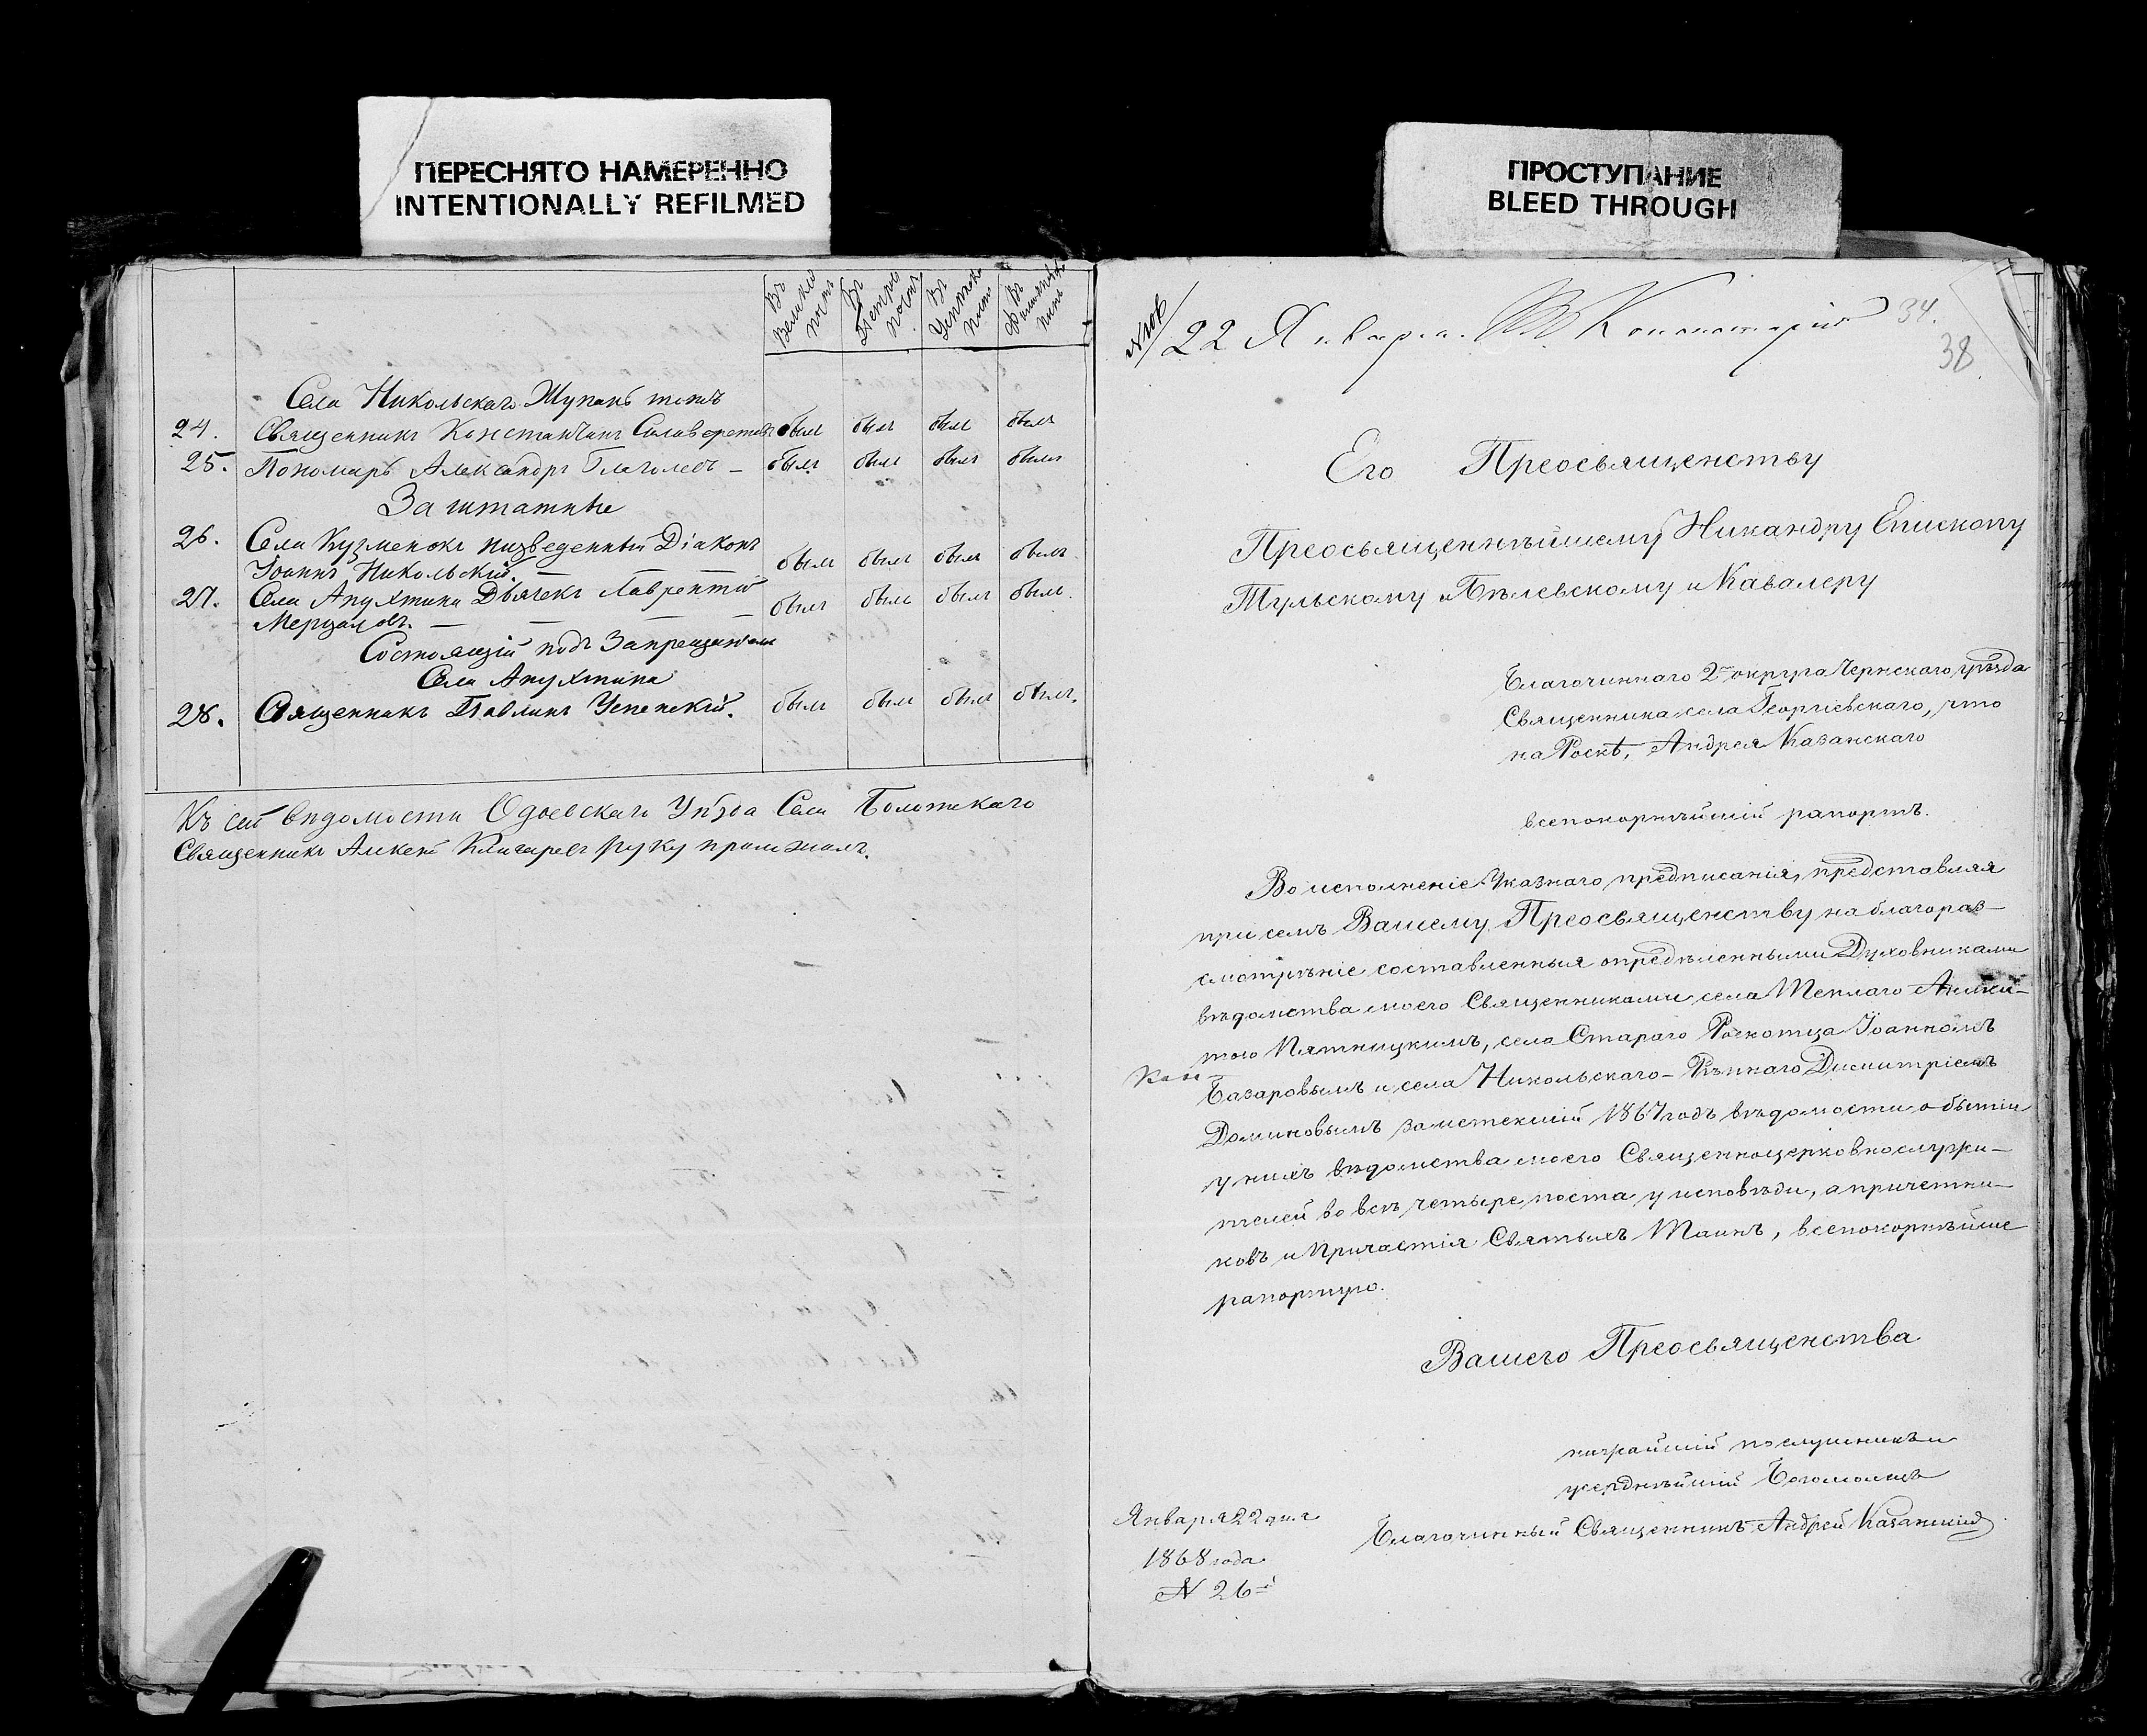 ПЕРЕСНЯТО НАМЕРЕННО
INTENTIONALLY REFILMED
Въ Великій постъ
Въ Петровъ постъ
Въ Успенскій постъ
Въ постъ
Села Никольскаго Жупань тожъ
24. Священникъ Константинъ былъ былъ былъ былъ
25. Пономарь Александръ Глаголевъ – былъ былъ былъ былъ
Заштатные
26. Села Кузменокъ низведенный Діаконъ
Іоаннъ Никольскій. – былъ былъ былъ былъ
27. Села Апухтина Дьячекъ Лаврентій
Мерцаловъ. – – – – былъ былъ былъ былъ.
Состоящій подъ Запрещеніемъ
Села Апухтина
28. Священникъ Павлинъ Успенскій. былъ былъ былъ былъ.
Къ сей ведомости Одоевскаго Уѣзда Села Болотскаго
Священникъ Алексѣй Ключаревъ руку приложилъ.
ПРОСТУПАНИЕ
BLEED THROUGH
22 Января. Въ Консисторію 34.
38
Его Преосвященству
Преосвященнѣйшему Никандру Епископу
Тульскому и Бѣлевскому и Кавалеру
Благочиннаго 2го округа Чернскаго уѣзда
Священника села Георгіевскаго, что
на Роскѣ, Андрея Казанскаго
всепокорнѣйшій рапортъ.
Во исполненіе Указнаго предписанія, представляя
при семъ Вашему Преосвященству на благораз-
смотрѣніе составленныя опредѣленными Духовниками
вѣдомства моего Священниками, села Теплаго
тою Пятницкимъ, села Стараго Роскотца Іоанномъ
Базаровымъ и села Никольскаго- Димитріемъ
Доминовымъ за истекшій 1867 годъ вѣдомости о бытіи
у нихъ вѣдомства моего Священноцерковнослужи-
телей во всѣ четыре поста у исповѣди, а причетни-
ковъ и Причастія Святыхъ Таинъ, всепокорнѣйше
рапортую.
Вашего Преосвященства
нижайшій послушникъ и
усерднѣйшій Богомолецъ
Благочинный Священникъ Андрей Казанскій
Января 22 дня
1868 года
N 26й